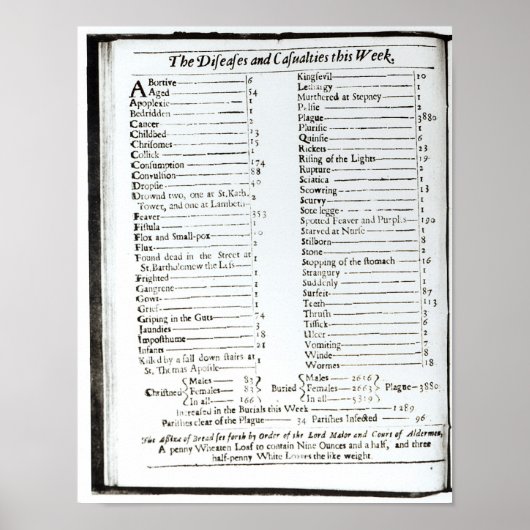 The Diseases and Casualties this Week.
ABortive 6
Aged 54
Apoplexie 1
Bedridden 1
Cancer 2
Childbed 23
Chrisomes 15
Collick 1
Consumption 174
Convulsion 88
Dropsie 40
Drownd two, one at St. Kath.
Tower, and one at Lambeth 2
Feaver 353
Fistula 1
Flox and Small-pox 10
Flux 2
Found dead in the Street at
St. Bartholomew the Less 1
Frighted 1
Gangrene 1
Gowt 1
Grief 1
Griping in the Guts 74
Jaundies 3
Imposthume 18
Infants 21
Kil'd by a fall down stairs at
St. Thomas Apostle 1
Kingsevil 10
Lethargy 1
Murthered at Stepney 1
Palsie 2
Plague 3880
Plurisie 1
Quinsie 6
Rickets 23
Rising of the Lights 19
Rupture 2
Sciatica 1
Scowring 13
Scurvy 1
Sore legge 1
Spotted Feaver and Purples 190
Starved at Nurse 1
Stilborn 8
Stone 2
Stopping of the stomach 16
Strangury 1
Suddenly 1
Surfeit 87
Teeth 113
Thrush 3
Tissick 6
Ulcer 2
Vomiting 7
Winde 8
Wormes 18
Christned Males 83 Females 83 In all 166
Buried Males 2656 Females 2663 In all 5319
Plague 3880
Increased in the Burials this Week 1289
Parishes clear of the Plague 34 Parishes Infected 96
The Assize of Bread set forth by Order of the Lord Maior and Court of Aldermen,
A penny Wheaten Loaf to contain Nine Ounces and a half, and three
half-penny White Loaves the like weight.